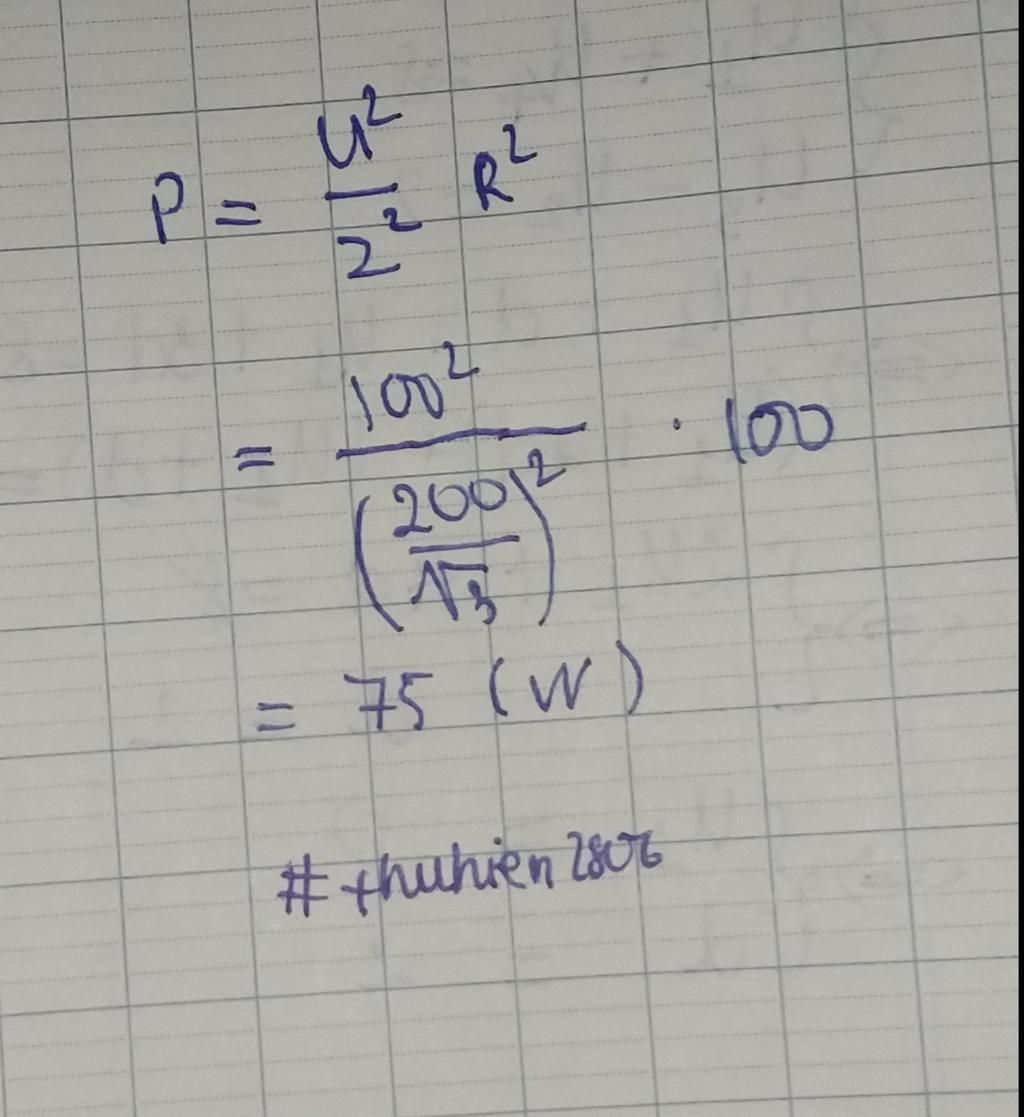 P = U² / Z² R²
= 100² / (200/√3)² · 100
= 75 (W)
# thuhien2806